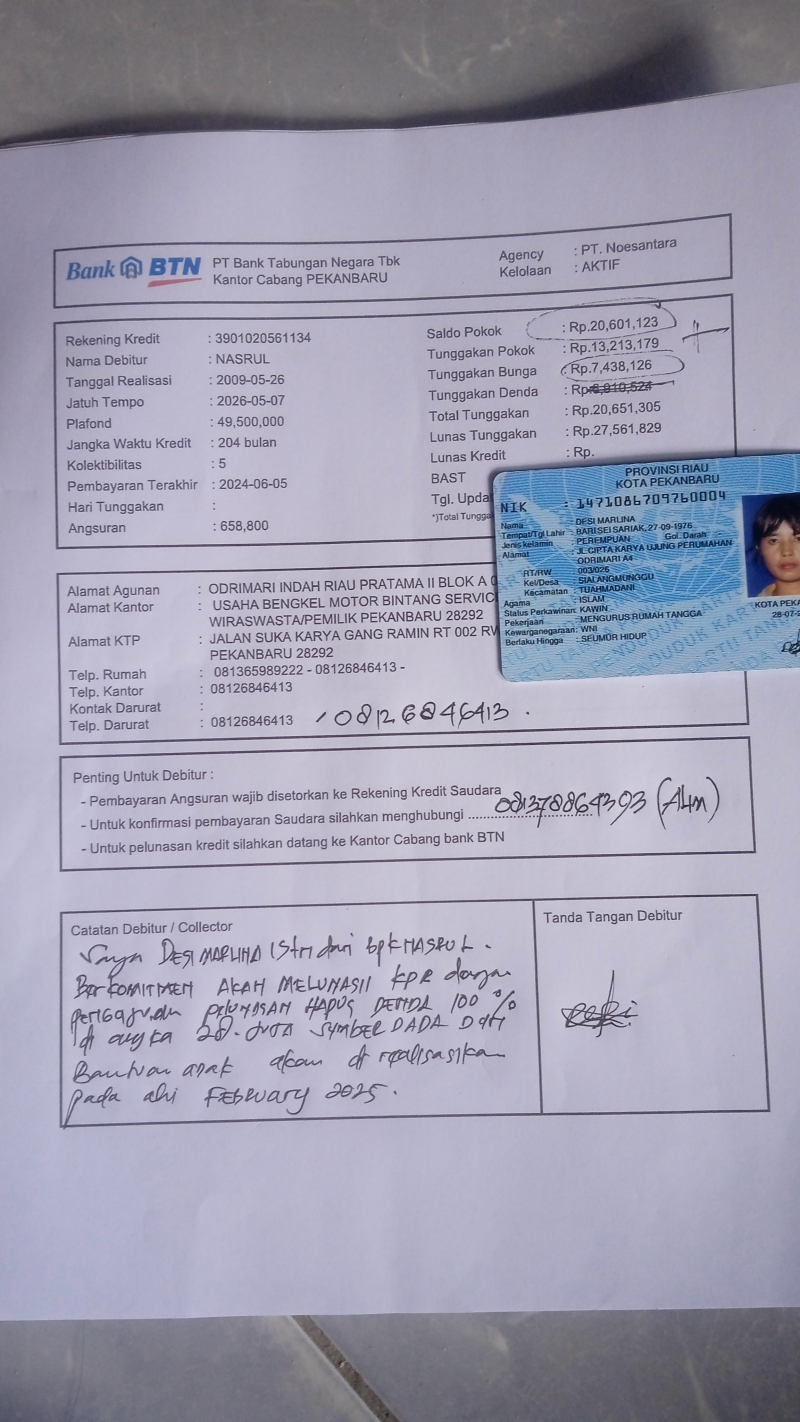 Bank BTN
PT Bank Tabungan Negara Tbk
Kantor Cabang PEKANBARU
Agency : PT. Noesantara
Kelolaan : AKTIF
Rekening Kredit : 3901020561134
Nama Debitur : NASRUL
Tanggal Realisasi : 2009-05-26
Jatuh Tempo : 2026-05-07
Plafond : 49,500,000
Jangka Waktu Kredit : 204 bulan
Kolektibilitas : 5
Pembayaran Terakhir : 2024-06-05
Hari Tunggakan :
Angsuran : 658,800
Saldo Pokok : Rp.20,601,123
Tunggakan Pokok : Rp.13,213,179
Tunggakan Bunga : Rp.7,438,126
Tunggakan Denda : Rp.6,910,524
Total Tunggakan : Rp.20,651,305
Lunas Tunggakan : Rp.27,561,829
Lunas Kredit : Rp.
BAST
Tgl. Upda
*)Total Tungga
PROVINSI RIAU
KOTA PEKANBARU
NIK : 1471086709760004
Nama : DESI MARLINA
Tempat/Tgl Lahir : BARI SEI SARIAK, 27-09-1976
Jenis kelamin : PEREMPUAN Gol. Darah
Alamat : JL CIPTA KARYA UJUNG PERUMAHAN
ODRIMARI A4
RT/RW : 003/026
Kel/Desa : SIALANGMUNGGU
Kecamatan : TUAHMADANI
Agama : ISLAM
Status Perkawinan: KAWIN
Pekerjaan : MENGURUS RUMAH TANGGA
Kewarganegaraan: WNI
Berlaku Hingga : SEUMUR HIDUP
KOTA PEKA
28-07-2
Alamat Agunan : ODRIMARI INDAH RIAU PRATAMA II BLOK A
Alamat Kantor : USAHA BENGKEL MOTOR BINTANG SERVIC
WIRASWASTA/PEMILIK PEKANBARU 28292
Alamat KTP : JALAN SUKA KARYA GANG RAMIN RT 002 RW
PEKANBARU 28292
Telp. Rumah : 081365989222 - 08126846413 -
Telp. Kantor : 08126846413
Kontak Darurat :
Telp. Darurat : 08126846413 / 08126846413 .
Penting Untuk Debitur :
- Pembayaran Angsuran wajib disetorkan ke Rekening Kredit Saudara
- Untuk konfirmasi pembayaran Saudara silahkan menghubungi ........ 081378864393
- Untuk pelunasan kredit silahkan datang ke Kantor Cabang bank BTN
Catatan Debitur / Collector
Saya DESI MARLINA istri dari bpk NASRUL.
BerKOMITMEN AKAN MELUNASII KPR dengan
pengajuan pelunASAN HAPUS DENDA 100 %
di angka 28. JUTA SUMBER DADA DARI
Bantuan anak akan di realisasikan
pada FEBRUARY 2025.
Tanda Tangan Debitur